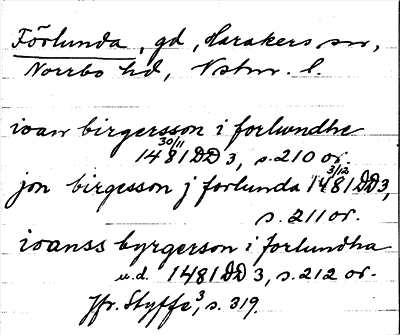 Förlunda, gd, Harakers sn,
Norrbo hd, Vstm. l.
ioan birgersson i forlundhe
30/11 1481 DD 3, s. 210 or.
jon birgesson j forlunda 3/12 1481 DD 3,
s. 211 or.
ioanss byrgerson i forlundha
u.d. 1481 DD 3, s. 212 or.
Jfr. Styffe 3, s. 319.